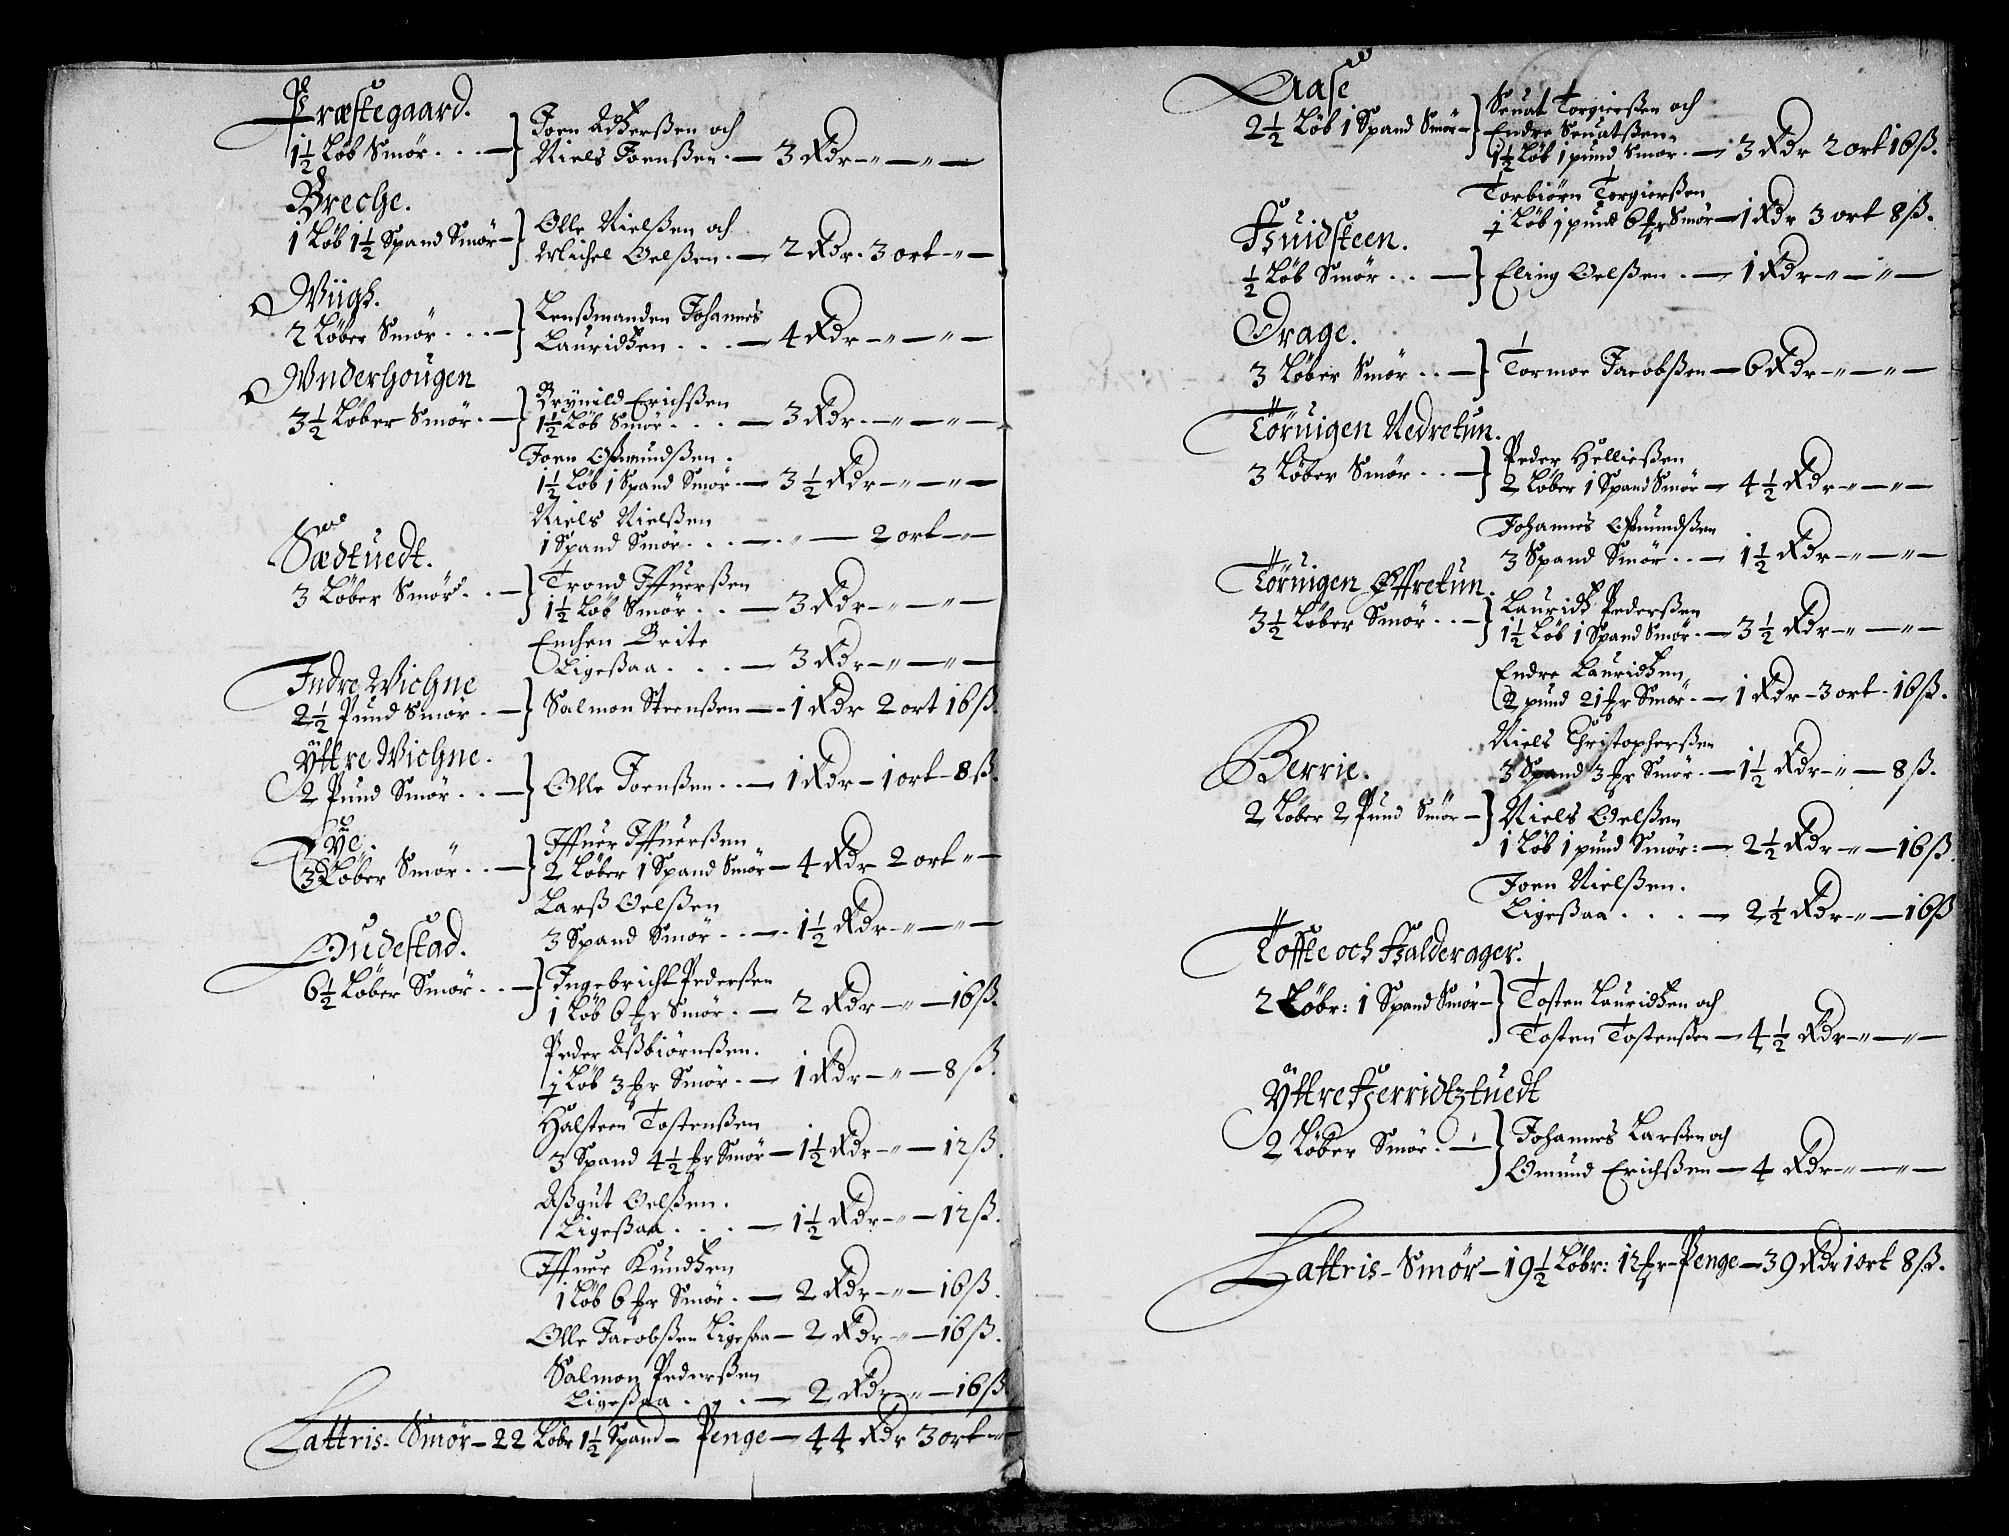 Præstegaard.
1½ Løb Smør . . . — } Joen Ackersßen och
Niels Joensßen. — 3 Rdr — „ — „ —
Breche.
1 Løb 1½ Spand Smør — } Olle Nielsßen och
Michel Oelsßen. — 2 Rdr. 3 ort — „ —
Wiigh.
2 Løber Smør . . . — } Lensmanden Johannes
Lauridtzen . . . — 4 Rdr — „ — „ —
Wnderhougen
3½ Løber Smør . — } Brynild Erichsßen
1½ Løb Smør . . . — 3 Rdr. — „ — „ —
Joen Omundsßen .
1½ Løb 1 Spand Smør. — 3½ Rdr — „ — „ —
Niels Nielsßen
1 Spand Smør . . . — . „ — 2 ort — „ —
Sædtuedt.
3 Løber Smør . . — } Trond Iffuersßen
1½ Løb Smør . . . — 3 Rdr — „ — „ —
Enchen Brite
Ligesßaa . . . — 3 Rdr — „ — „ —
Indre Wichne
2½ Pund Smør . — } Salmon Steensßen — 1 Rdr 2 ort 16 ß.
Yttre Wichne.
2 Pund Smør . . — } Olle Joensßen . . — 1 Rdr — 1 ort — 8 ß.
Tye.
3 Løber Smør . . — } Iffuer Iffuersßen
2 Løber 1 Spand Smør — 4 Rdr 2 ort „ —
Larß Oelsßen
3 Spand Smør . . — . 1½ Rdr — „ — „ —
Gudestad.
6½ Løber Smør . . — } Ingebricht Pedersßen
1 Løb 6 mr Smør. — 2 Rdr — „ — 16 ß.
Peder Aßbiørnsßen.
½ Løb 3 mr Smør. — 1 Rdr — „ — 8 ß.
Halsteen Tostensßen
3 Spand 4½ mr Smør — 1½ Rdr — „ — 12 ß.
Aßgut Oelsßen.
Ligesßaa . . . — 1½ Rdr — „ — 12 ß.
Iffuer Knudtzen
1 Løb 6 mr Smør. — 2 Rdr — „ — 16 ß.
Olle Jacobsßen Ligesaa — 2 Rdr — „ — 16 ß.
Salmon Pedersßen
Ligesßaa . . . — 2 Rdr — „ — 16 ß
Lattris – Smør – 22 Løbr 1½ Spand – Penge — 44 Rdr 3 ort — „ —
Aase
2½ Løb 1 Spand Smør — } Seuat Torgiersßen och
Endre Seuatsßen
1½ Løb 1 pund Smør . — 3 Rdr 2 ort 16 ß.
Torbiørn Torgiersßen
½ Løb 1 pund 6 mr Smør — 1 Rdr 3 ort 8 ß.
Huidsteen.
½ Løb Smør . . — } Eling Oelsßen . — 1 Rdr — „ — „ —
Drage.
3 Løber Smør . . — } Tormoe Jacobsßen — 6 Rdr — „ — „ —
Törnigen Nedretun.
3 Løber Smør . . — } Peder Helliesßen
2 Løber 1 Spand Smør — 4½ Rdr — „ — „ —
Johannes Omundsßen
3 Spand Smør . . — 1½ Rdr — „ — „ —
Törnigen Øffretun.
3½ Løber Smør . . — } Lauridtz Pedersßen
1½ Løb 1 Spand Smør. — 3½ Rdr — „ — „ —
Endre Lauridtzen
2 pund 21 mr Smør. — 1 Rdr – 3 ort – 16 ß.
Niels Christophersßen
3 Spand 3 mr Smør. — 1½ Rdr — „ — 8 ß.
Berrie.
2 Løber 2 Pund Smør — } Niels Oelsßen
1 Løb 1 pund Smør: — 2½ Rdr — „ — 16 ß.
Joen Nielsßen.
Ligesßaa . . . — 2½ Rdr — „ — 16 ß
Toffte och Halderager.
2 Løbr: 1 Spand Smør — } Tosten Lauridtzen och
Tosten Tostensßen — 4½ Rdr — „ — „ —
Yttre Herridtztuedt
2 Løber Smør . — } Johannes Larsßen och
Omund Erichsßen — 4 Rdr — „ — „ —
Lattris – Smør – 19½ Løbr: 12 mr – Penge — 39 Rdr 1 ort 8 ß.